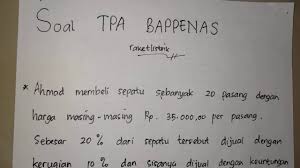 Soal TPA BAPPENAS
* Ahmad membeli sepatu sebanyak 20 pasang dengan
harga masing-masing Rp. 35.000,00 per pasang.
Sebesar 20% dari sepatu tersebut dijual dengan
kerugian 10% dan sisanya dijual dengan keuntungan